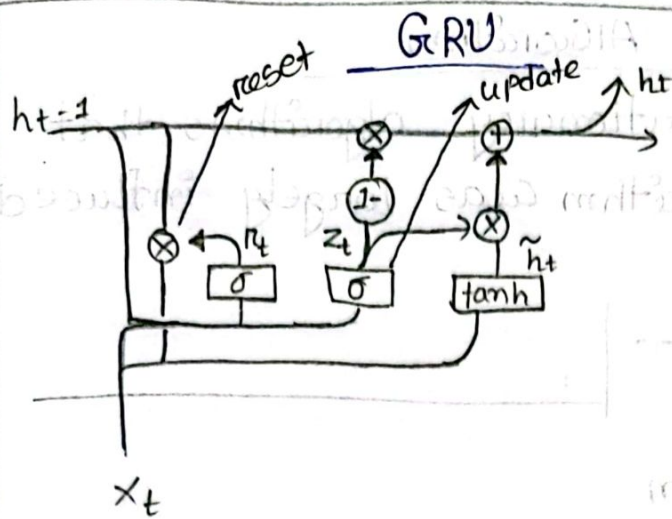 GRU
reset
update
ht-1
ht
1-
rt
zt
h̃t
σ
σ
tanh
xt